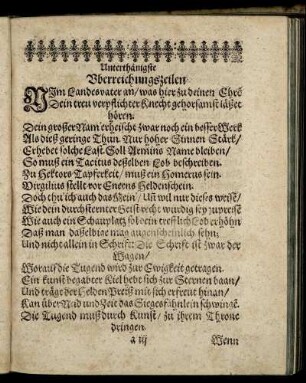 Unterthänigste
Überreichungszeilen
NIm Landesvater an/ was hier zu deinen Ehrē
Dein treu verpflichter Knecht gehorsamst läßet
hören.
Dein großer Nam' erheischt zwar noch ein besser Werk
Als dieß geringe Thun. Nur hoher Sinnen Stärk/
Erhebet solche Last. Soll Armins Name bleiben/
So muß ein Tacitus desselben Lob beschreiben.
Zu Hektors Tapferkeit/ muß ein Homerus sein.
Virgilius stellt vor Eneens Heldenschein.
Doch thu' ich auch das Mein/
Wie dein durchsternter Geist
Wie auch ein Schauplatz sol dein trefflich Lob erhöhn
Daß man dasselbige mag augenscheinlich sehn;
Und nicht allein in Schrift: Die Schrift ist zwar der
Wagen/
Worauf die Tugend wird zur Ewigkeit getragen.
Ein kunst begabter Kiel hebt sich zur Sternen baan/
Und träge der Helden Preiß mit sich erfreut hinan/
Kan über Nüd und Zeit das Siegesfähnlein schwingē.
Die Tugend muß durch Kunst/ zu ihrem Throne
dringen.
a iij Wenn